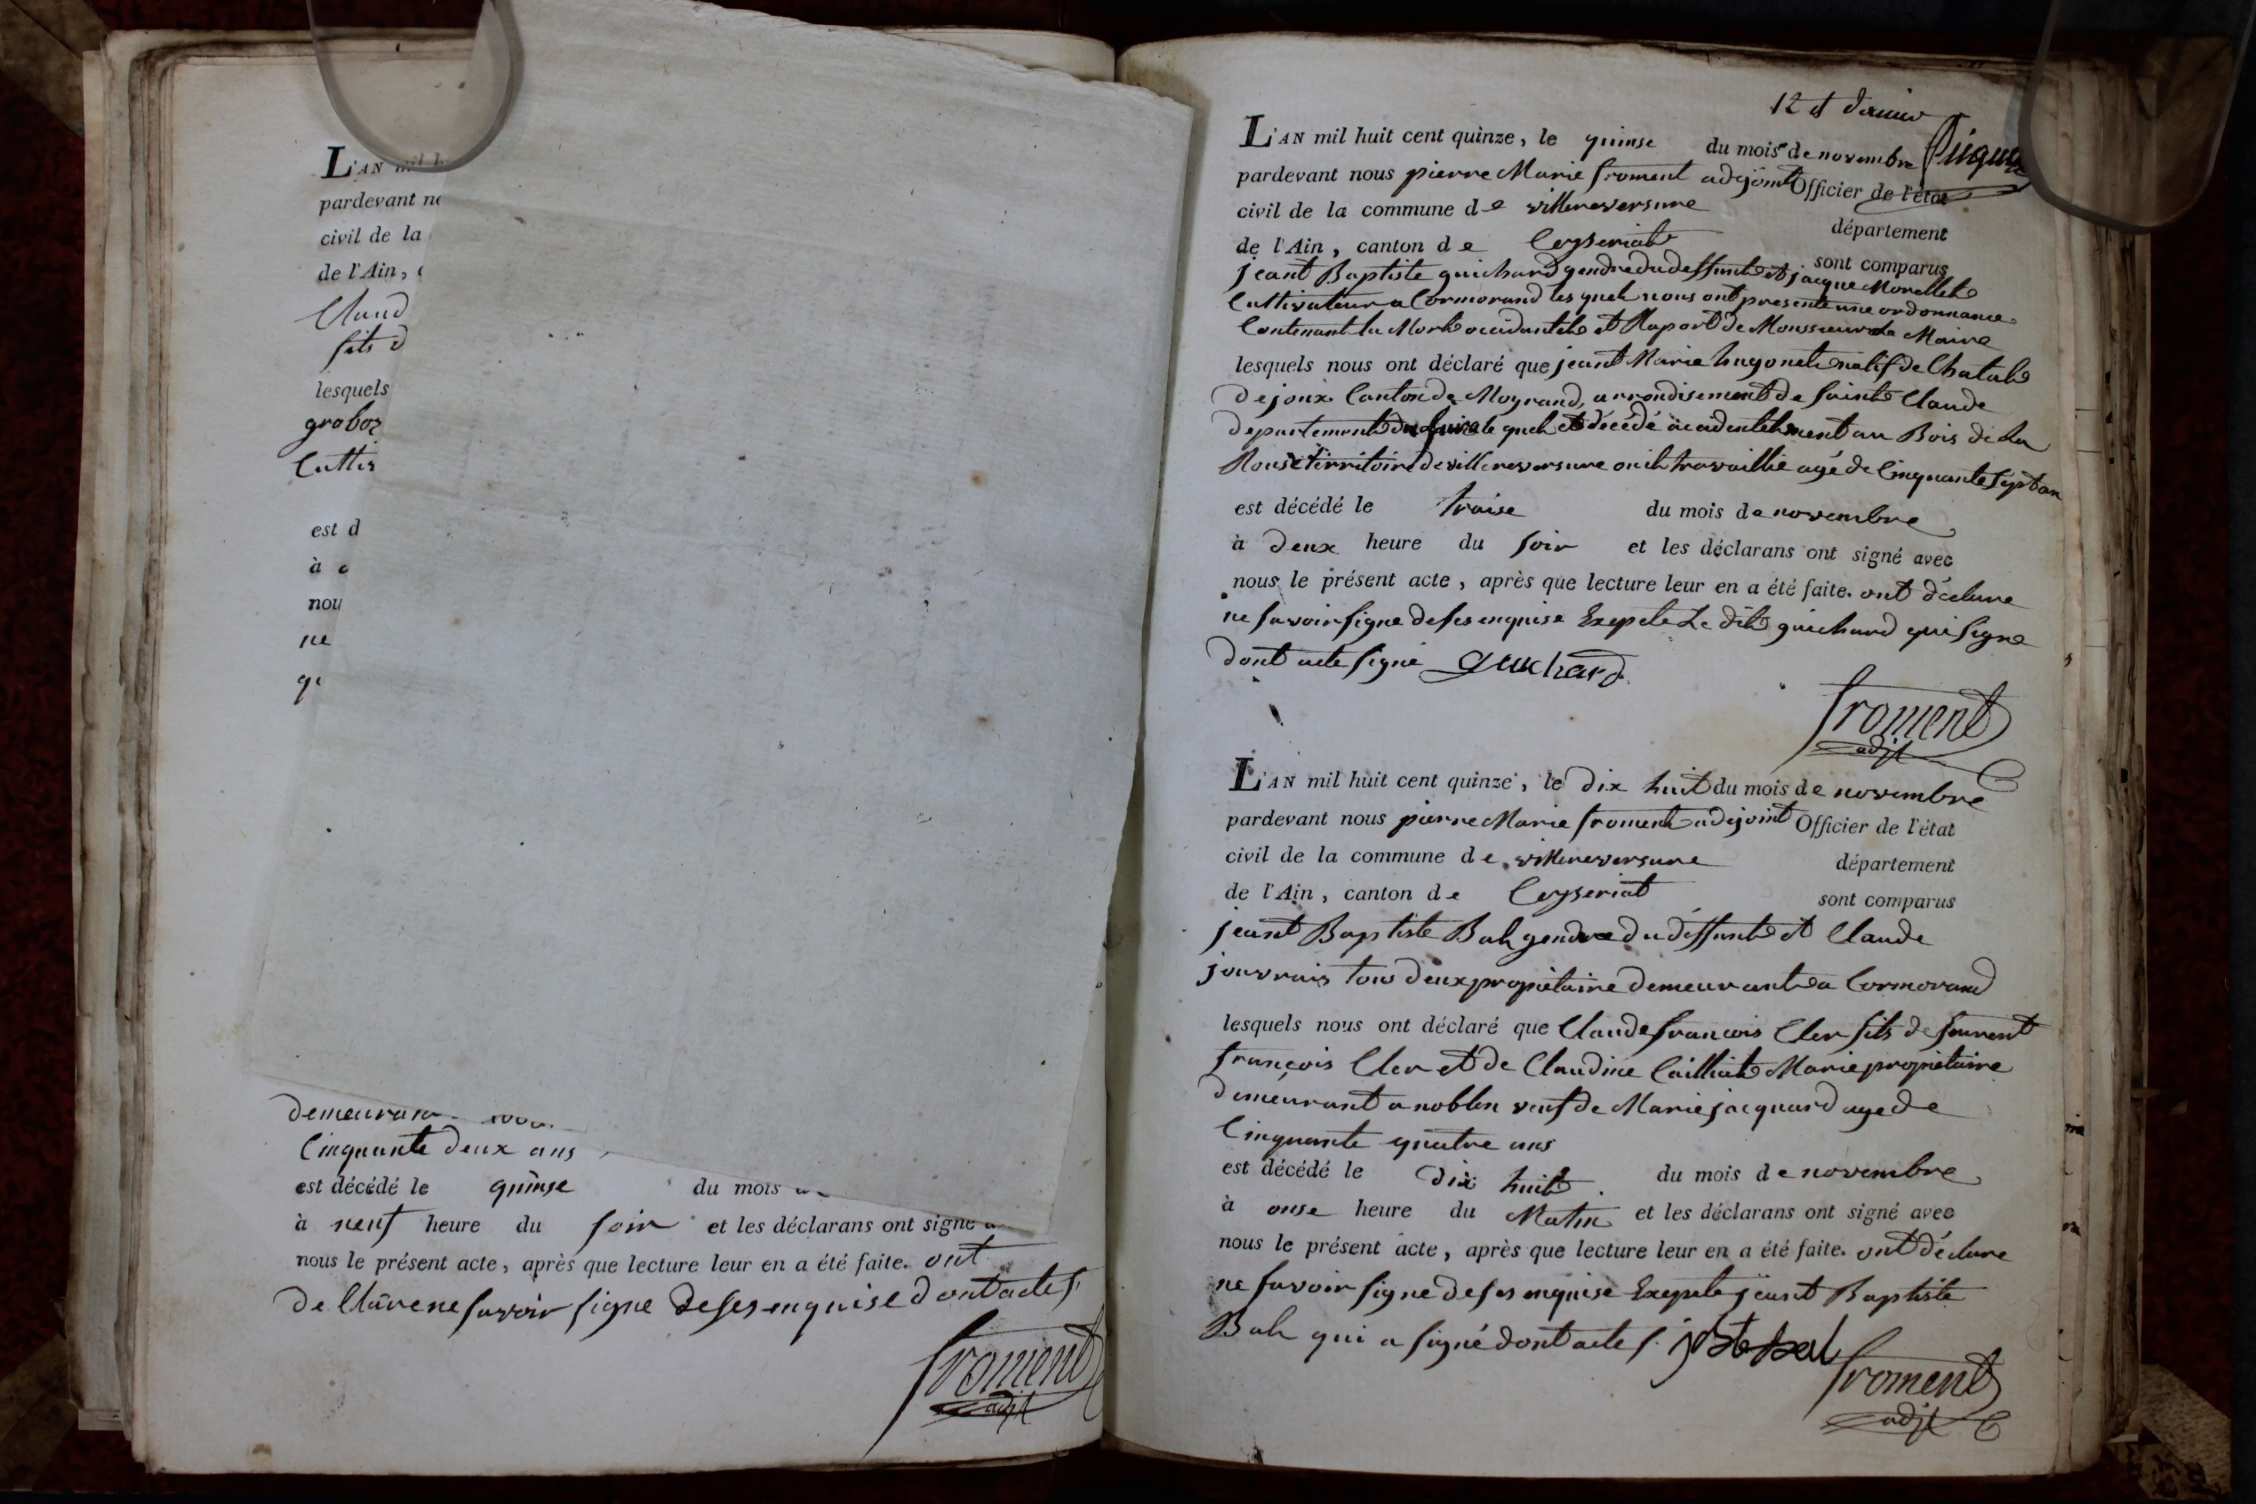 L'AN mil h
pardevant no
civil de la
de l'Ain, c
Claud
fils d
lesquels
graboz
Cultiv
est d
à
nou
ne
qu
demeurant
Cinquante deux ans
est décédé le quinse du mois
à neuf heure du soir et les déclarans ont signé
nous le présent acte, après que lecture leur en a été faite. ont
de Clare ne savoir signe de ses enquise dont acte s
froment
adjt
12 et dernier
L'AN mil huit cent quinze, le quinse du mois de novembre
pardevant nous pierre Marie froment adjoint Officier de l'état
civil de la commune de villereversure département
de l'Ain, canton de Ceyseriat sont comparus
jeant Baptiste guichard gendre du deffunt et jacque Morellet
Cultivateur a Cormorand les quels nous ont presente une ordonnance
Contenant la Mort accidantele et Raport de Monssieur le Maire
lesquels nous ont déclaré que jeant Marie hugonet natif de Chatel
de joux Canton de Moyrand, arrondisement de Sainte Claude
departement du jura le quel et décédé accidentelement au Bois de La
Rouse territoire de villereversure ou il travaillie agé de Cinquante Sept an
est décédé le traise du mois de novembre
à deux heure du soir et les déclarans ont signé avec
nous le présent acte, après que lecture leur en a été faite. ont déclare
ne savoir signe de ses enquise Exepte Le dit guichard qui signe
dont acte signé Guichard
froment
adjt
L'AN mil huit cent quinze, le dix huit du mois de novembre
pardevant nous pierre Marie froment adjoint Officier de l'état
civil de la commune de villereversure département
de l'Ain, canton de Ceyseriat sont comparus
jeant Baptiste Bal gendre du déffunt et Claude
jouvrais tous deux propietaire demeurant a Cormorand
lesquels nous ont déclaré que Claude francois Cler fils de
françois Cler et de Claudine Cailliat Marie propietaire
demeurant a noblen veuf de Marie jacquard age de
Cinquante quatre ans
est décédé le dix huit du mois de novembre
à onse heure du Matin et les déclarans ont signé avec
nous le présent acte, après que lecture leur en a été faite. ont déclare
ne savoir signe de ses enquise Exepte jeant Baptiste
Bal qui a signé dont acte s. jbte bal
froment
adjt